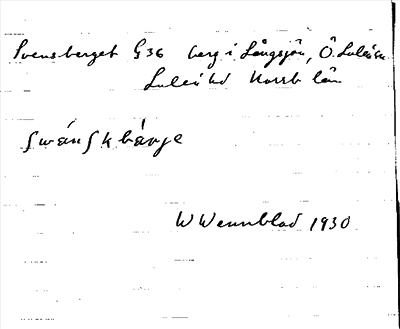 Svensberget G36 berg i Långsjön, Ö. Luleå sn
Luleå hd Norrb län
swénskbérje
W Wennblad 1930